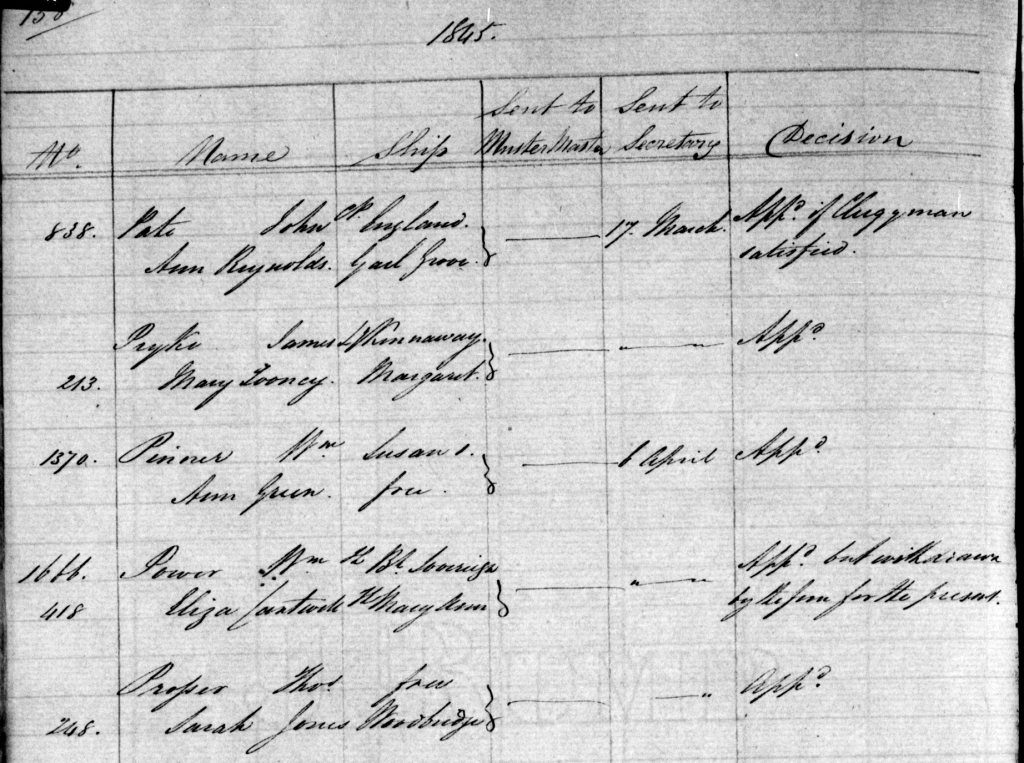 158
1845.
No. Name Ship Sent to Muster Master Sent to Secretary Decision
838. Pate John P. England. 17. March. Appd. if Clergyman
Ann Reynolds. Garl Grove. satisfied.
Pryke James Ld Kinnaway. " " Appd.
213. Mary Tooney. Margaret.
1370. Pinner Wm Susan 1. 6 April Appd.
Ann Green. free.
1666. Power Wm H Bl. Sovereign " Appd. but withdrawn
418 Eliza Cantwell H Mary Ann by the fem for the present.
Prosser Thos. free " Appd.
248. Sarah Jones Woodbridge